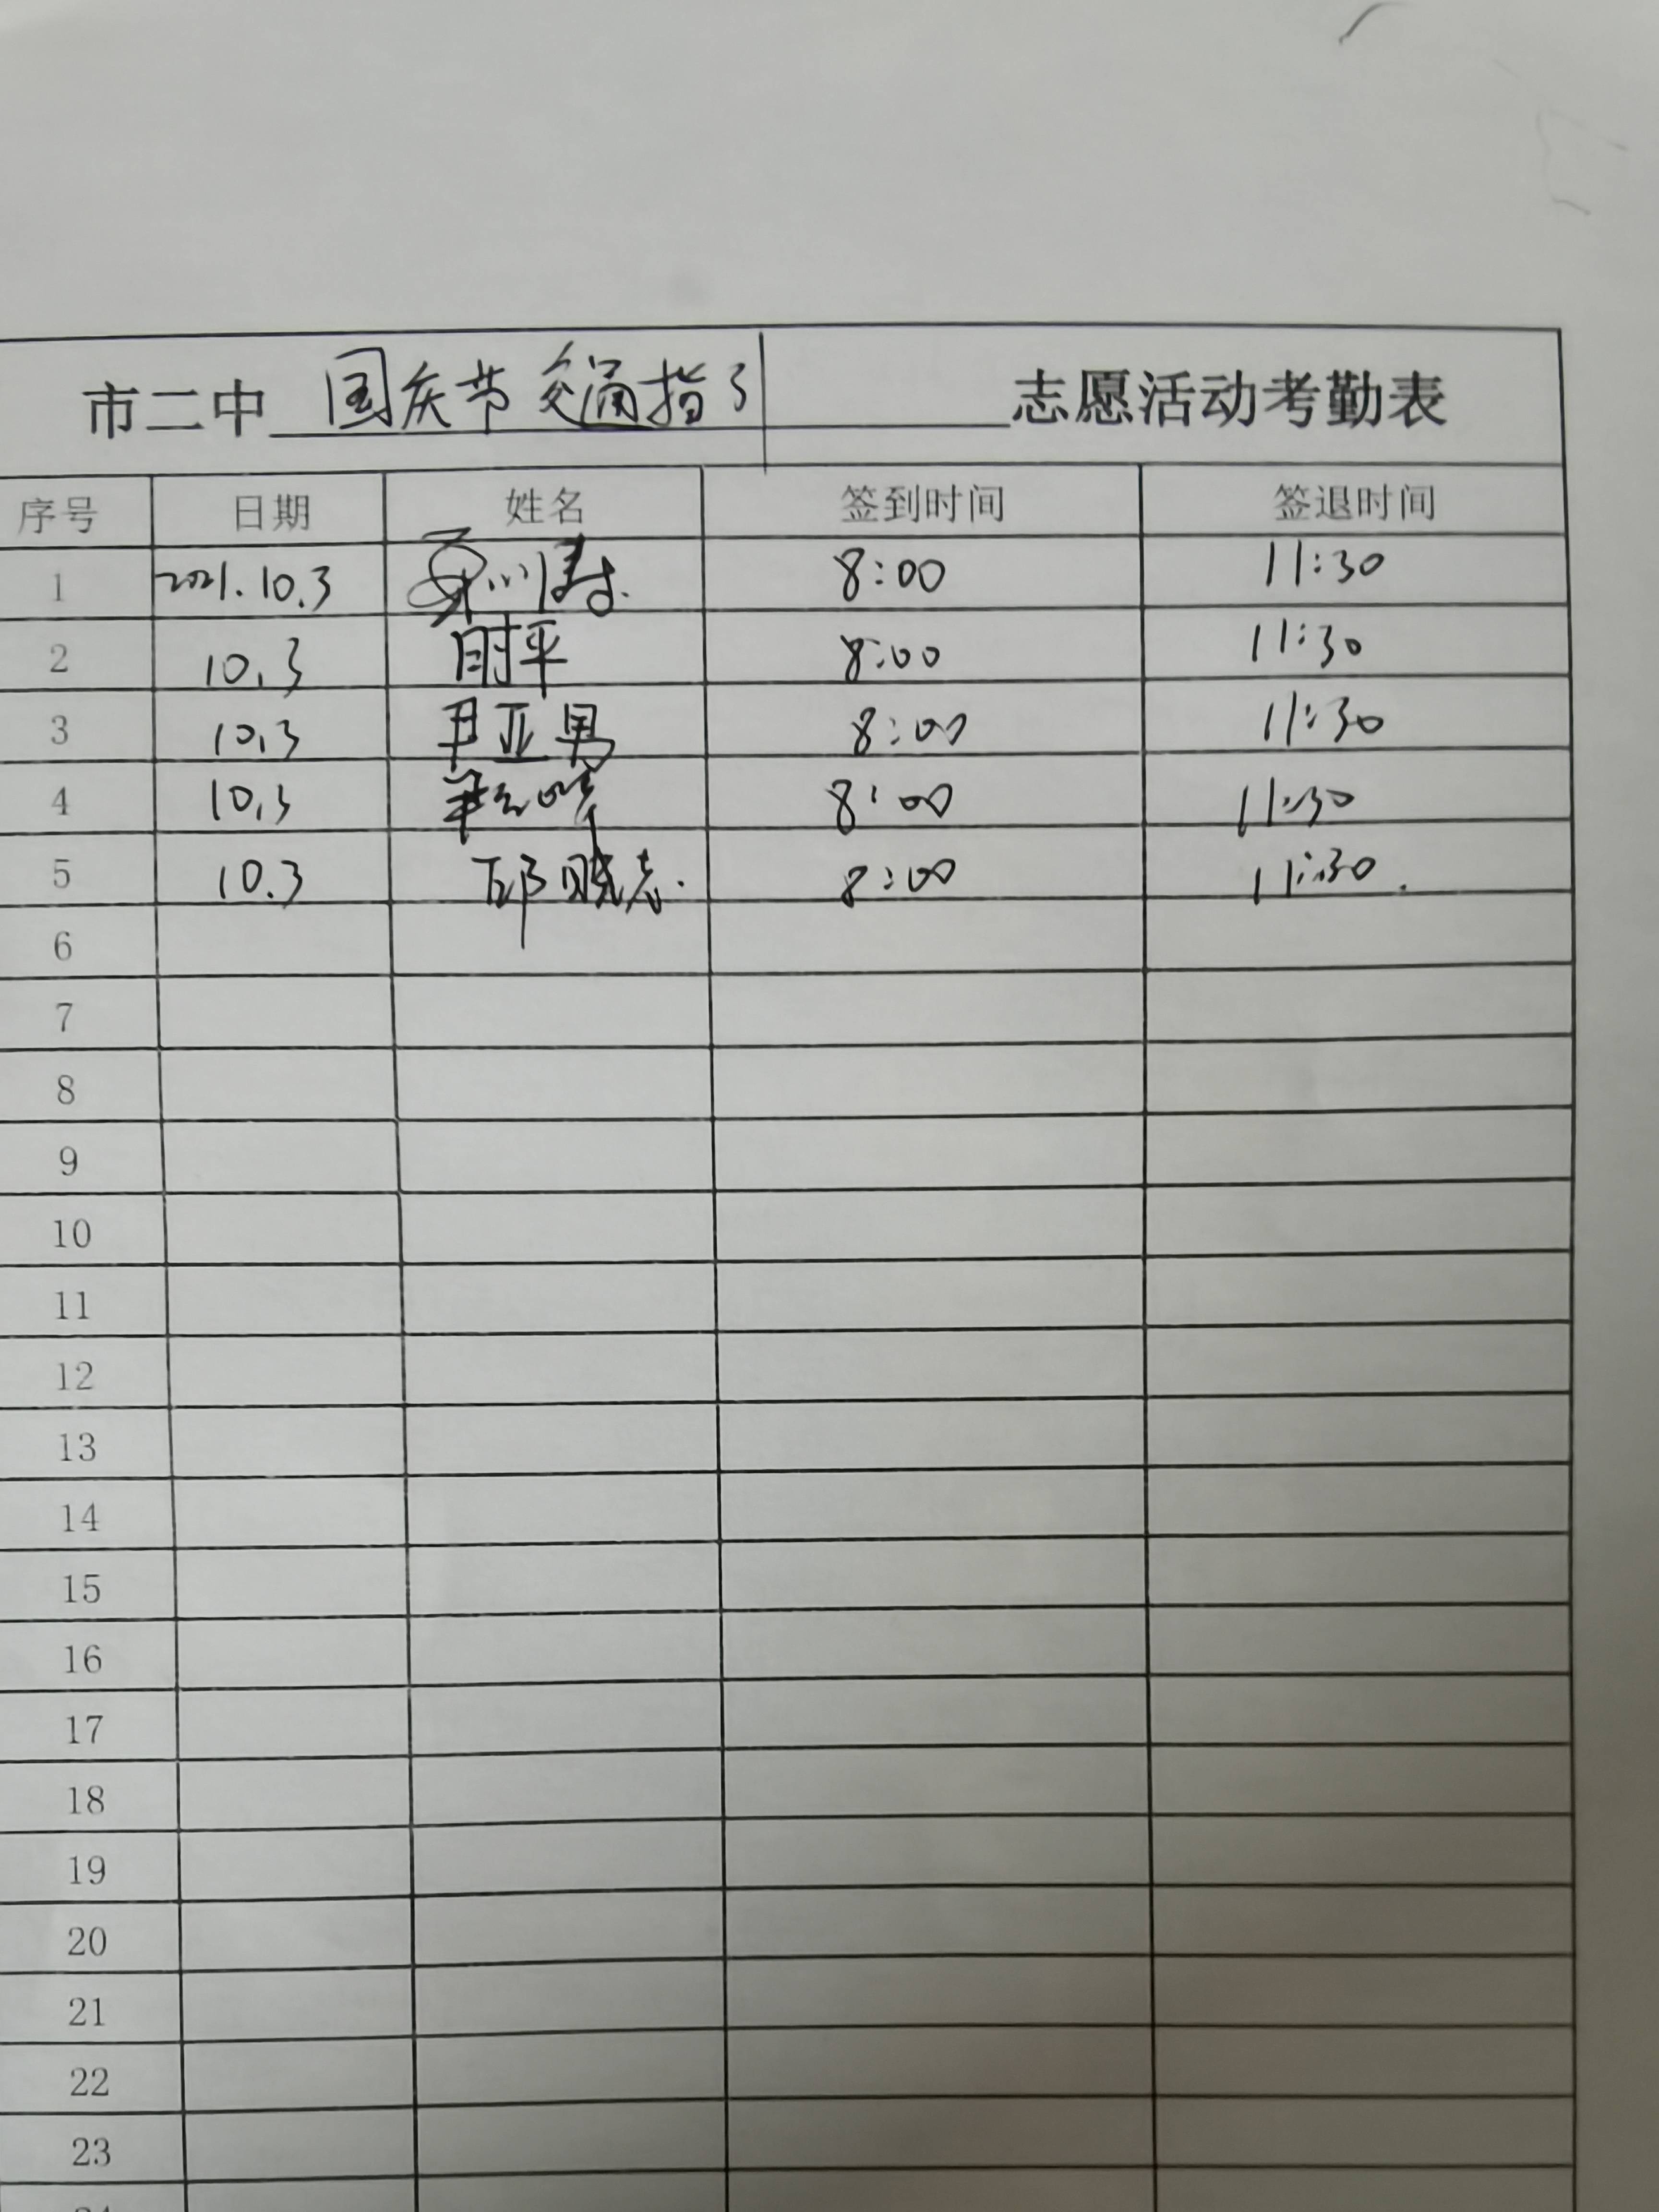 市二中 国庆节交通指引 志愿活动考勤表
序号 日期 姓名 签到时间 签退时间
1 2021.10.3 8:00 11:30
2 10.3 时平 8:00 11:30
3 10.3 尹亚男 8:00 11:30
4 10.3 8:00 11:30
5 10.3 邝晓志. 8:00 11:30.
6
7
8
9
10
11
12
13
14
15
16
17
18
19
20
21
22
23